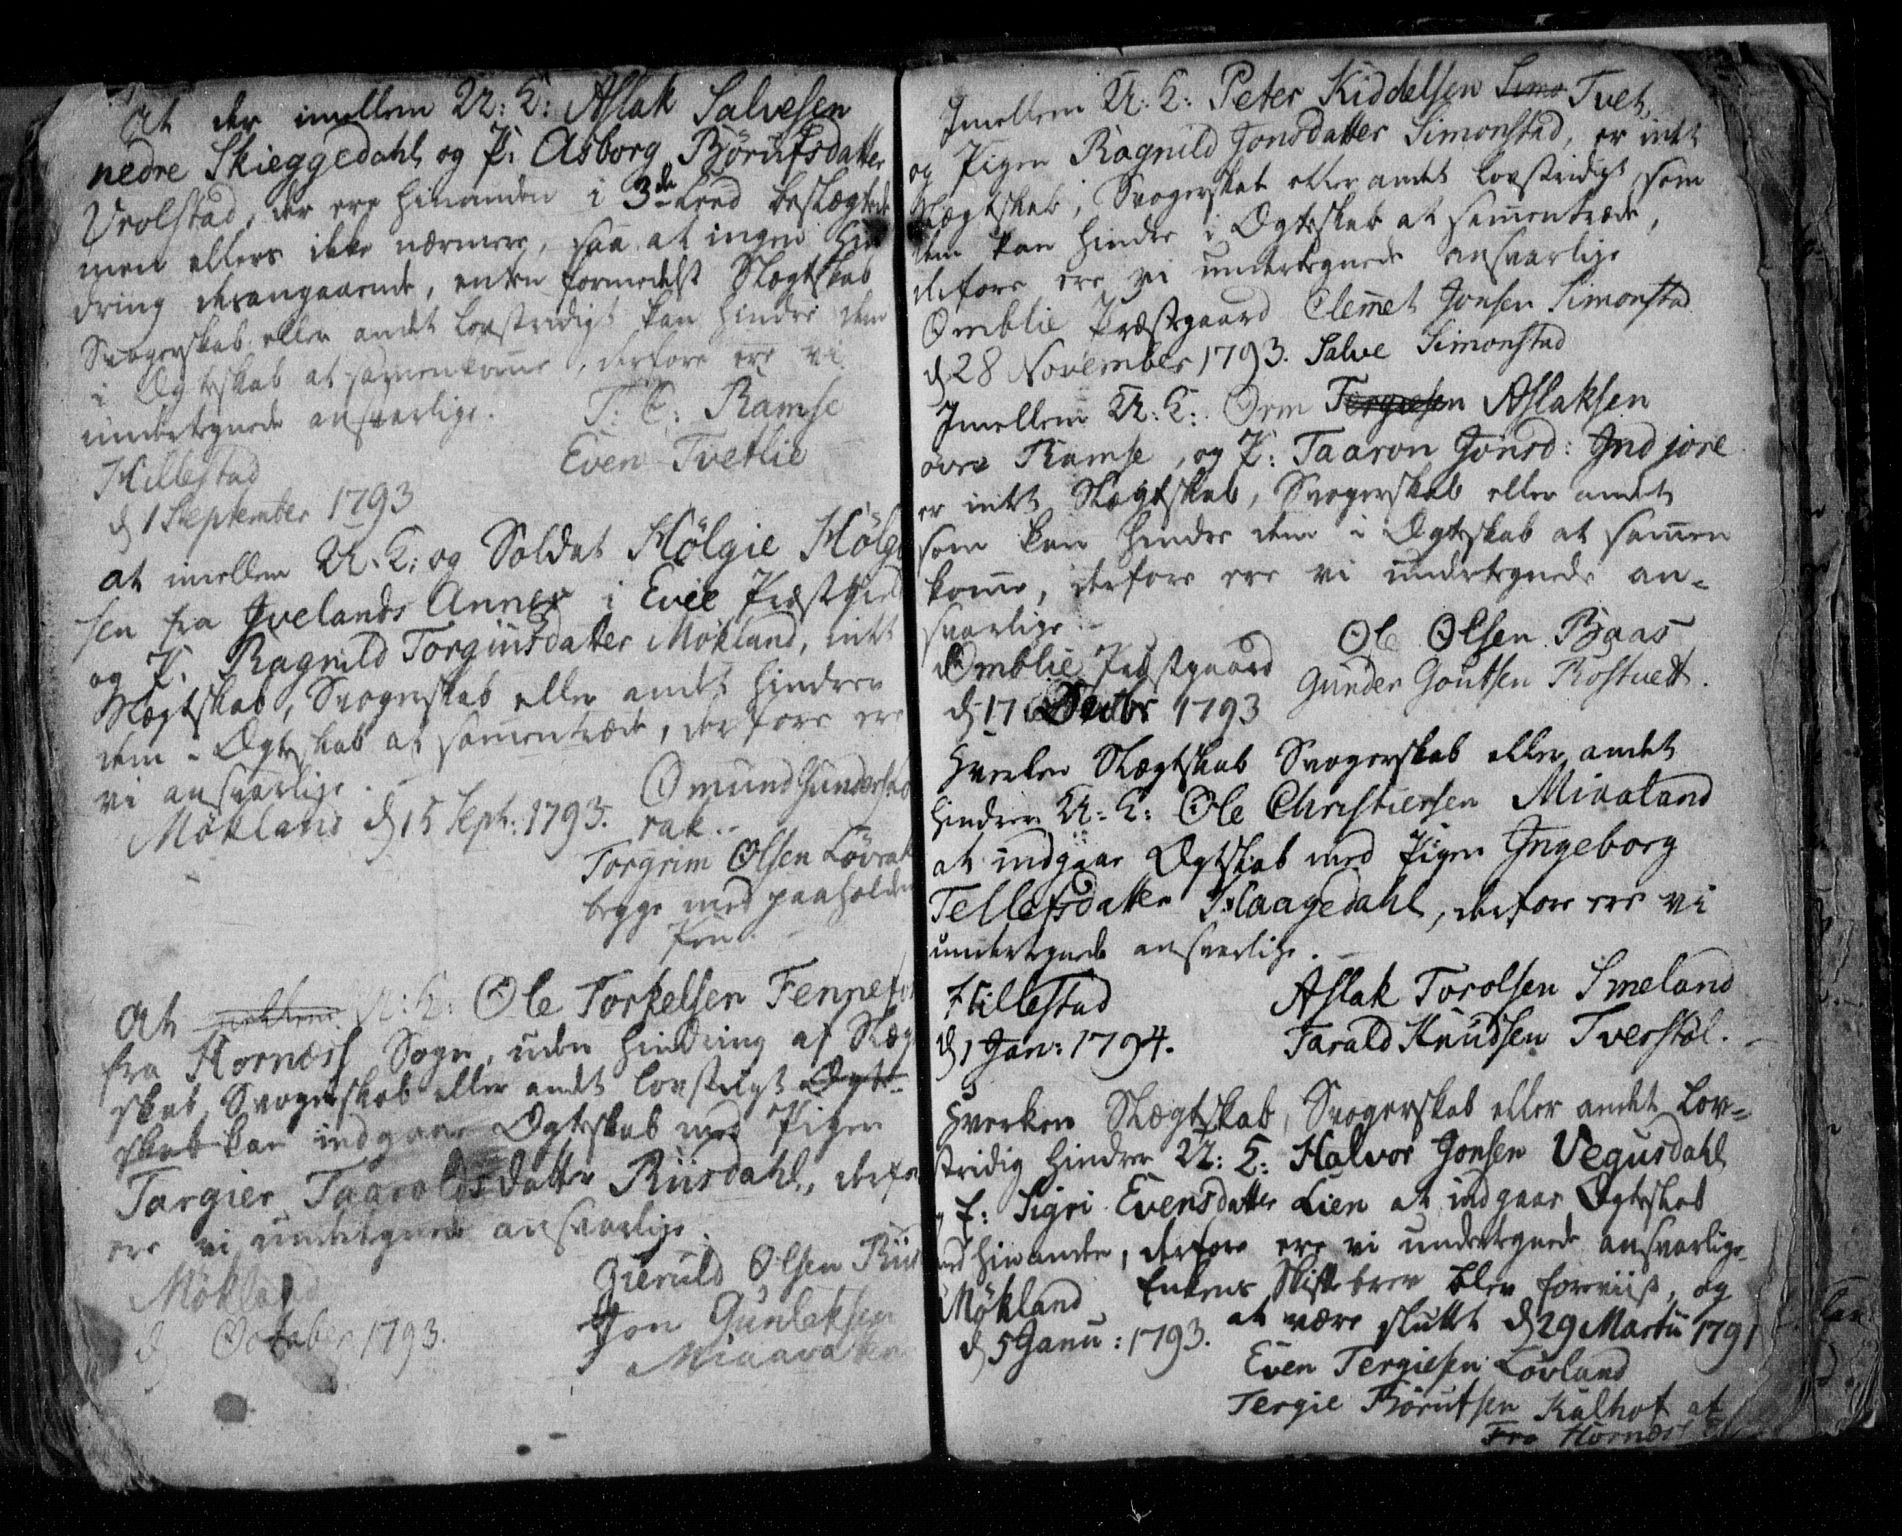 At der imellem U: K: Aslak Salvesen
nedre Skieggedahl og P: Asborg Börufsdatter
Vrolstad, der ere hinanden i 3de Leed beslægtede
men ellers ikke nærmere, saa at ingen Hin
dring desangaaende, enten formedelst Slægtskab
Svogerskab eller andet lovstridigt kan hindre dem
i Ægteskab at sammenkomme, derfore ere vi
undertegnede ansvarlige.
T: C: Ramse
Even Tvetlie
Hillestad
d 1 September 1793
at imellem U: K: og Soldat Hölgie Hölgi
sen fra Ivelands Annex i Evie Præstegield
og P. Ragnild Torgiusdatter Mökland, intet
Slægtskab, Svogerskab eller andet hindrer
dem i Ægteskab at sammentræde, derfore ere
vi ansvarlige.
Mökland d 15 Sept: 1793.
Omund Gunders
rak.
Torgrim Olsen Lövrak
begge med paaholden
Pen.
At imellem U: K: Ole Torkelsen Fennefos
fra Hornæss Sogn, uden Hindring af Slægt
skab, Svogerskab eller andet lovstridigt Ægte-
skab kan indgaae Ægteskab med Pigen
Targier Taaroldsdatter Riisdahl, derfore
ere vi undertegnede ansvarlige.
Mökland
d October 1793.
Gieruld Olsen Riis
Jon Gunlaksen
Miaavaten
Imellem U: K: Peter Kiddelsen Simo Tvet,
og Pigen Ragnild Jonsdatter Simonstad, er intet
Slægtskab, Svogerskab eller andet lovstridigt som
dem kan hindre i Ægteskab at sammentræde,
derfore ere vi undertegnede ansvarlige
Omblie Præstegaard Clemet Jonsen Simonstad
d 28 November 1793. Salve Simonstad
Imellem U: K: Orm Tergiesen Aslaksen
övre Ramse, og P: Taaron Jonsd: Indjore
er intet Slægtskab, Svogerskab eller andet
som kan hindre dem i Ægteskab at sammen
komme, derfore ere vi undertegnede an-
svarlige
Omblie Præstgaard
d 17 Decbr 1793
Ole Olsen Baas
Gunder Goutsen Rostvett.
Hverken Slægtskab Svogerskab eller andet
hindrer U: K: Ole Christensen Mivaland
at indgaae Ægteskab med Pigen Ingeborg
Tellefsdatter Haagedahl, derfore ere vi
undertegnede ansvarlige.
Hillestad
d 1 Jan: 1794.
Aslak Torolsen Smeland
Tarald Knudsen Tverstöl.
Hverken Slægtskab, Svogerskab eller andet Lov-
stridig hindrer U: K: Halvor Jonsen Vegusdahl
og E: Sigri Evensdatter Lien at indgaae Ægteskab
med hinanden, derfore ere vi undertegnede ansvarlige
Mökland Enkens Skiftebrev blev foreviist, og
d 5 Janu: 1793. at være sluttet d 29 Martii 1791
Even Tergiesen Lövland
Tergie Börufsen Kalhof at
Fra Hornæss